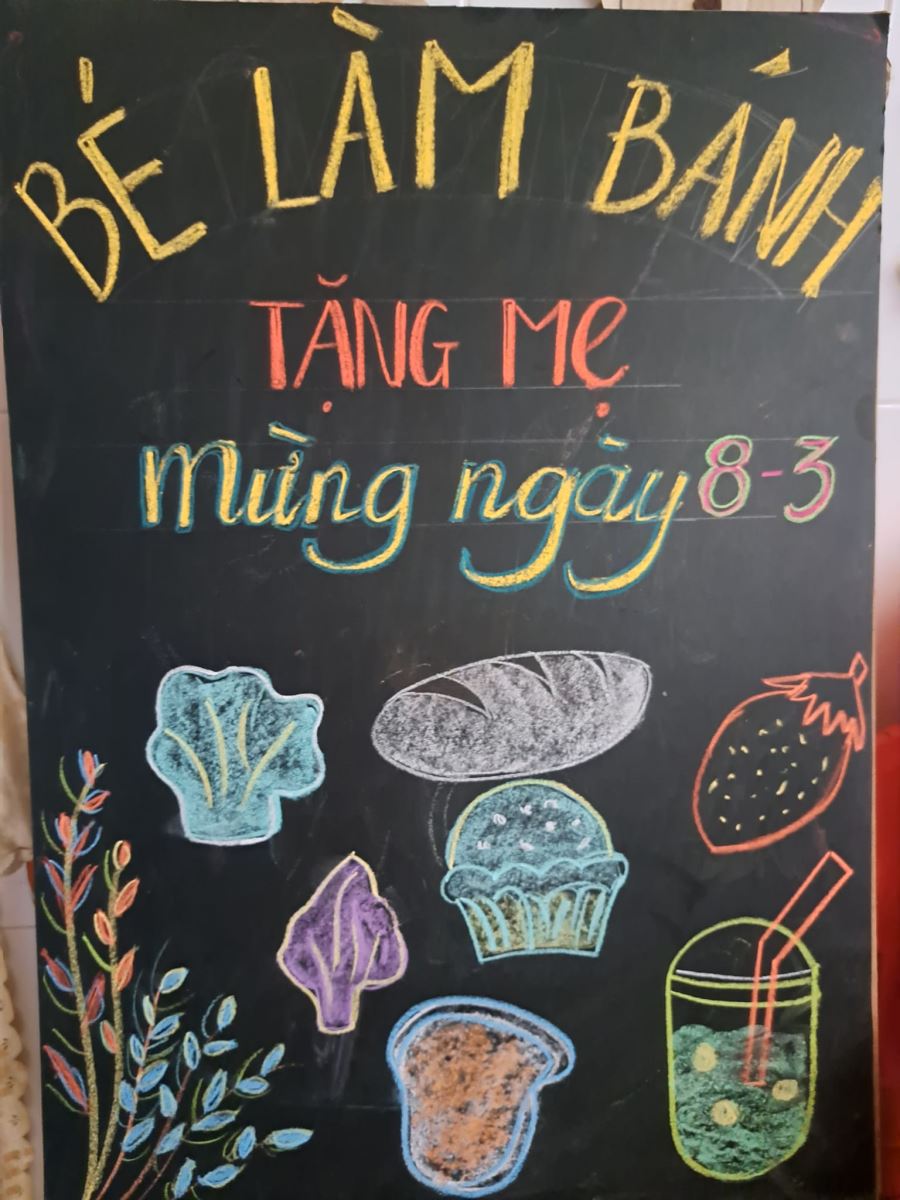 BÉ LÀM BÁNH
TẶNG MẸ
mừng ngày 8-3